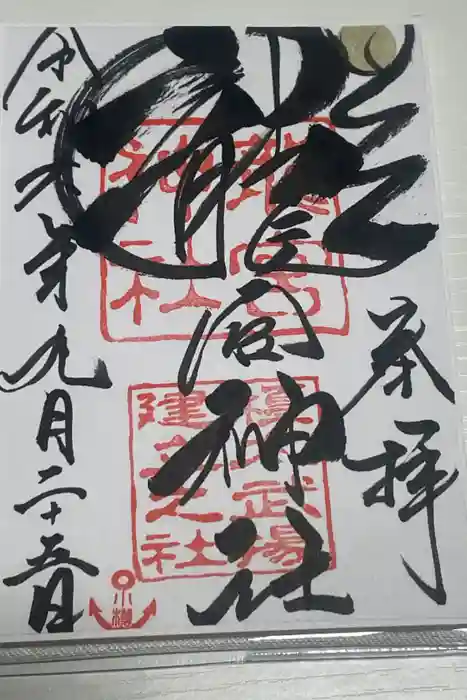 奉拝
龍宮神社
令和六年九月二十五日
龍宮
神社
榎本武揚
建立之社
小樽